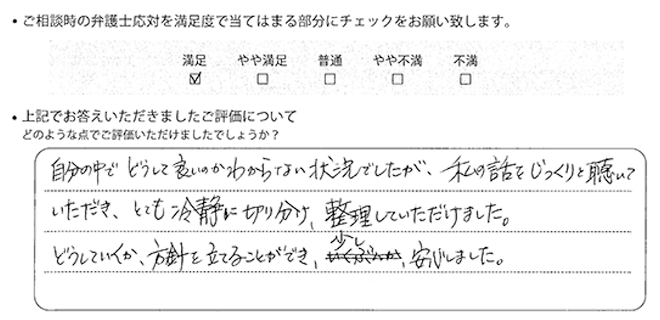 ・ご相談時の弁護士応対を満足度で当てはまる部分にチェックをお願い致します。
満足 やや満足 普通 やや不満 不満
☑ □ □ □ □
・上記でお答えいただきましたご評価について
どのような点でご評価いただけましたでしょうか？
自分の中でどうして良いのかわからない状況でしたが、私の話をじっくりと聴いて
いただき、とても冷静に切り分け、整理していただけました。
どうしていくか、方針を立てることができ、少し、安心しました。